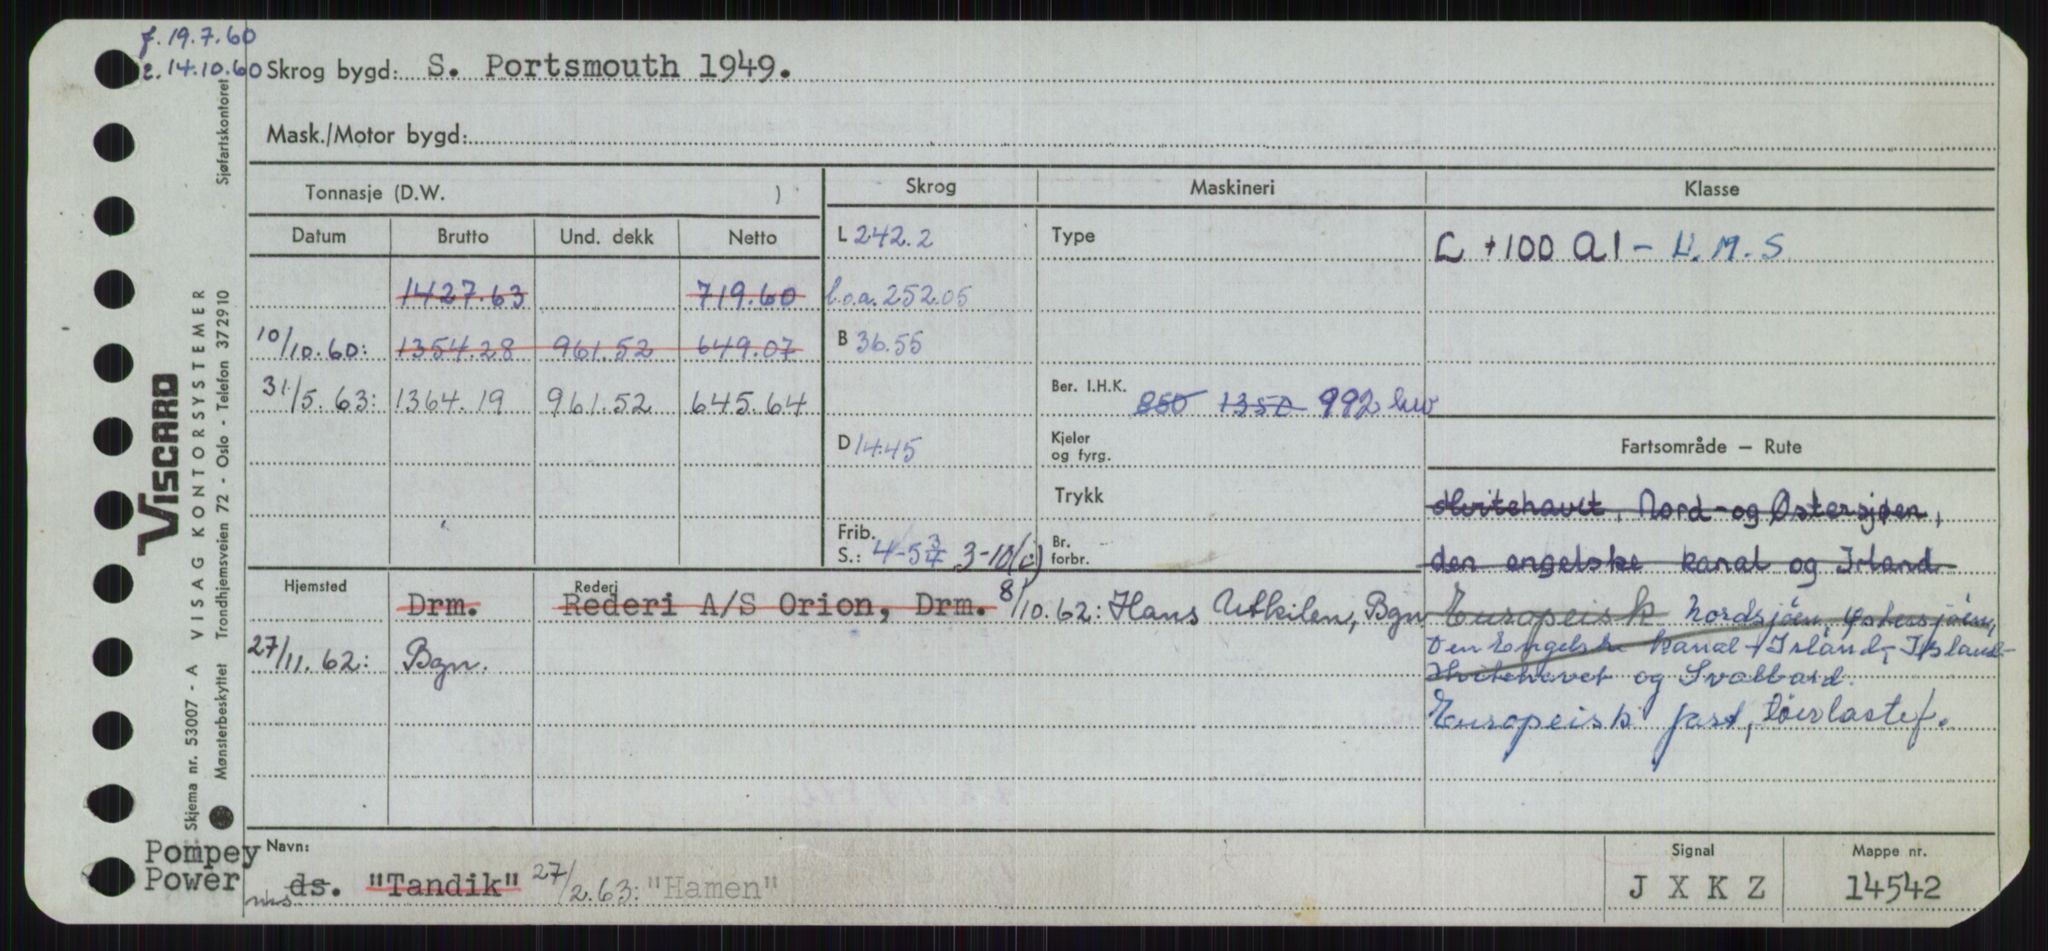 f. 19.7.60
e. 14.10.60
Skrog bygd: S. Portsmouth 1949.
Mask./Motor bygd:
Tonnasje (D.W. )
Skrog
Maskineri
Klasse
Datum Brutto Und. dekk Netto
L 242.2
Type
L + 100 A1 - L.M.S
1427.63 719.60
l.o.a. 252.05
10/10.60: 1354.28 961.52 649.07
B 36.55
31/5.63: 1364.19 961.52 645.64
Ber. I.H.K. 850 1350 992 hw
D 14.45
Kjeler og fyrg.
Fartsområde — Rute
Trykk
Hvitehavet, Nord- og Østersjøen,
Frib. S.: 4-5 3/4 3-10(i)
Br. forbr.
den engelske kanal og Irland
Hjemsted
Rederi
Drm. Rederi A/S Orion, Drm. 8/10.62: Hans Utkilen, Bgn
Europeisk Nordsjøen, Østersjøen,
27/11.62: Bgn.
Den Engelske kanal + Irland, Island-
Hvitehavet og Svalbard.
Europeisk fart, tørrlastef.
Navn:
Signal
Mappe nr.
Pompey
Power
ds. "Tandik" 27/2.63: "Hamen"
m/s
J X K Z
14542
VISCARD
Skjema nr. 53007 - A VISAG KONTORSYSTEMER
Mønsterbeskyttet Trondhjemsveien 72 - Oslo - Telefon 372910 Sjøfartskontoret